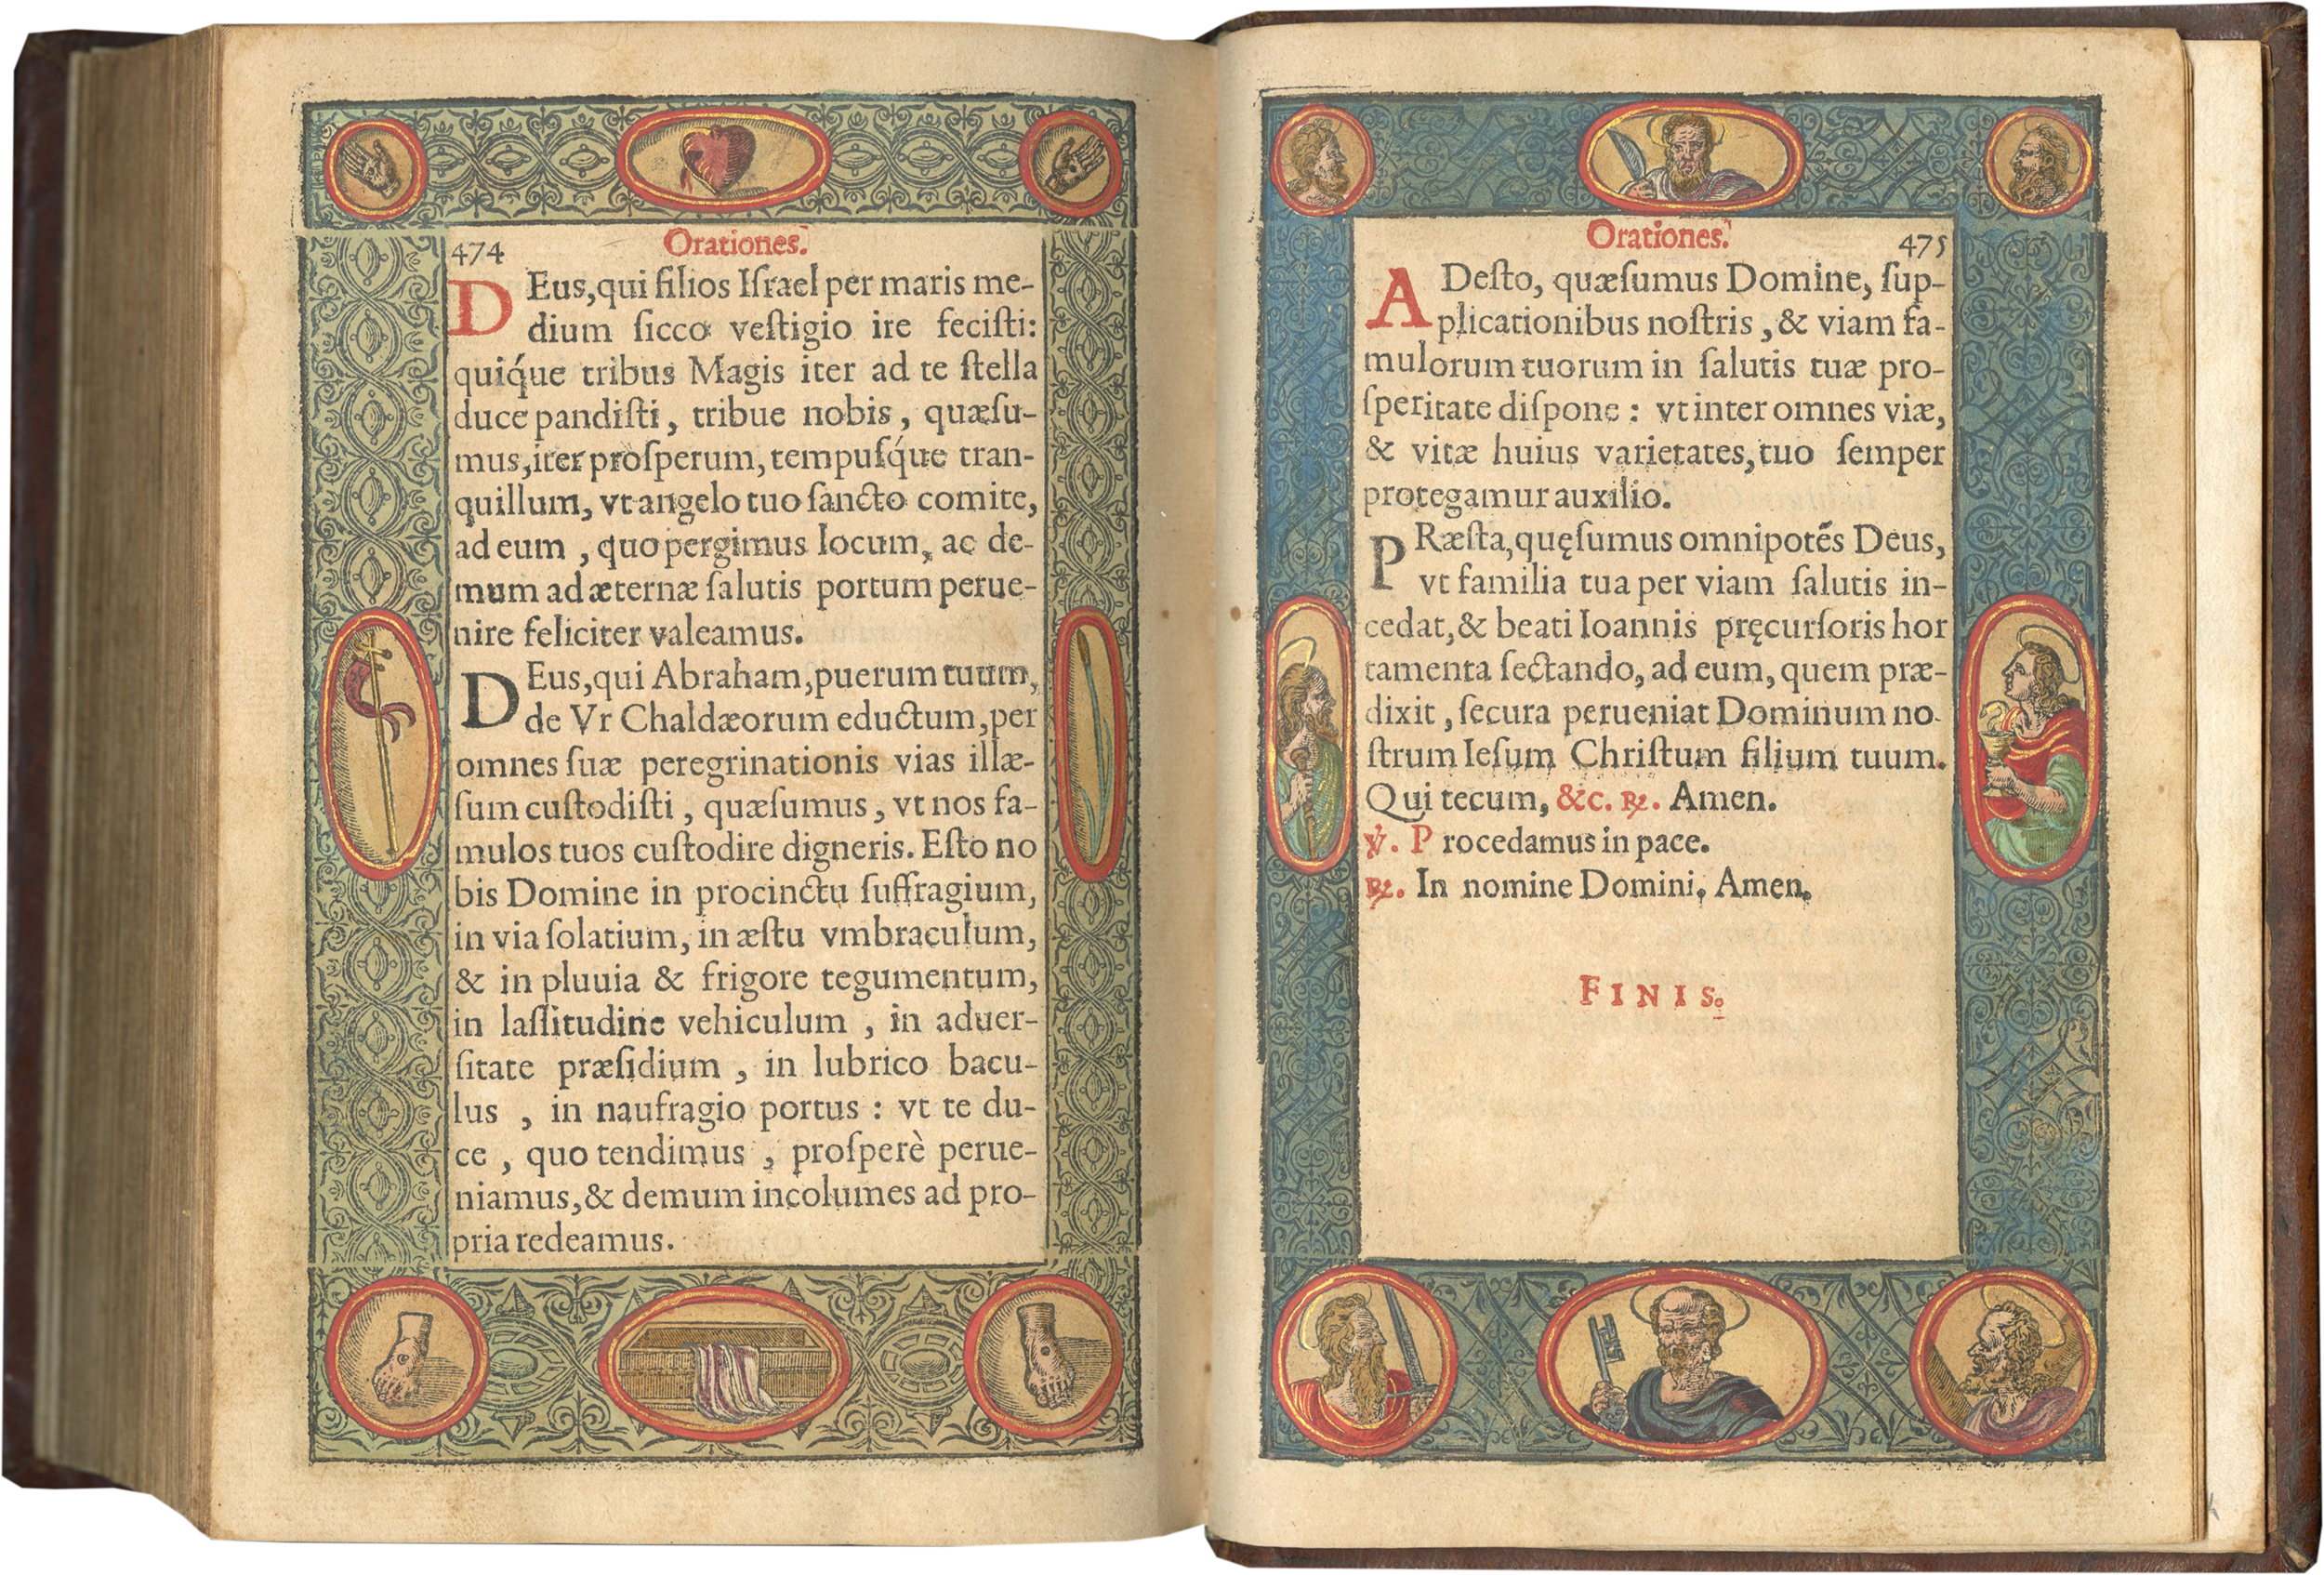 474
Orationes.
DEus,qui filios Iſrael per maris me-
dium ſicco veſtigio ire feciſti:
quiq́ue tribus Magis iter ad te ſtella
duce pandiſti, tribue nobis, quæſu-
mus,iter proſperum, tempuſq́ue tran-
quillum, vt angelo tuo ſancto comite,
ad eum , quo pergimus locum, ac de-
mum ad æternæ ſalutis portum perue-
nire feliciter valeamus.
DEus,qui Abraham,puerum tuum,
de Vr Chaldæorum eductum,per
omnes ſuæ peregrinationis vias illæ-
ſum cuſtodiſti , quæſumus , vt nos fa-
mulos tuos cuſtodire digneris. Eſto no
bis Domine in procinctu ſuffragium,
in via ſolatium, in æſtu vmbraculum,
& in pluuia & frigore tegumentum,
in laſſitudine vehiculum , in aduer-
ſitate præſidium , in lubrico bacu-
lus , in naufragio portus : vt te du-
ce , quo tendimus , proſperè perue-
niamus,& demum incolumes ad pro-
pria redeamus.
Orationes.
475
ADeſto, quæſumus Domine, ſup-
plicationibus noſtris , & viam fa-
mulorum tuorum in ſalutis tuæ pro-
ſperitate diſpone : vt inter omnes viæ,
& vitæ huius varietates, tuo ſemper
protegamur auxilio.
PRæſta,quęſumus omnipotẽs Deus,
vt familia tua per viam ſalutis in-
cedat,& beati Ioannis pręcurſoris hor
tamenta ſectando, ad eum, quem præ-
dixit , ſecura perueniat Dominum no-
ſtrum Ieſum Chriſtum filium tuum.
Qui tecum, &c. ℞. Amen.
℣. Procedamus in pace.
℞. In nomine Domini, Amen.
FINIS.